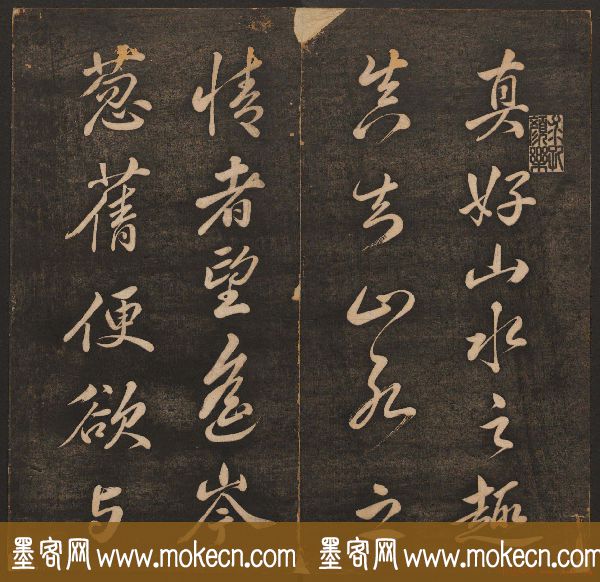 真好山水之趣
真知山水之
情者望遥岑
葱蒨便欲与
墨客网 www.mokecn.com 墨客网 www.mokecn.com